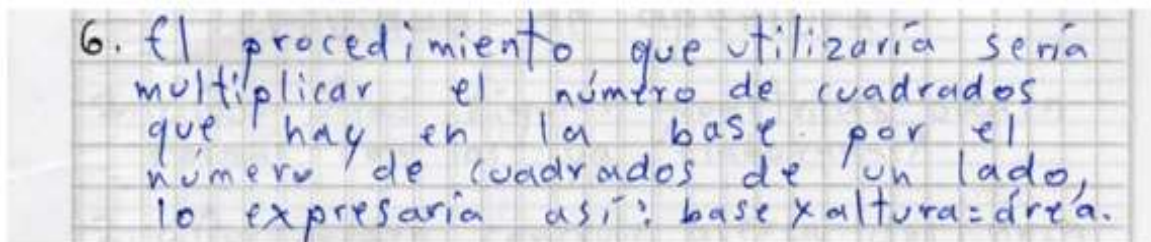 6. El procedimiento que utilizaría sería
multiplicar el número de cuadrados
que hay en la base por el
número de cuadrados de un lado,
lo expresaría así: base x altura = área.